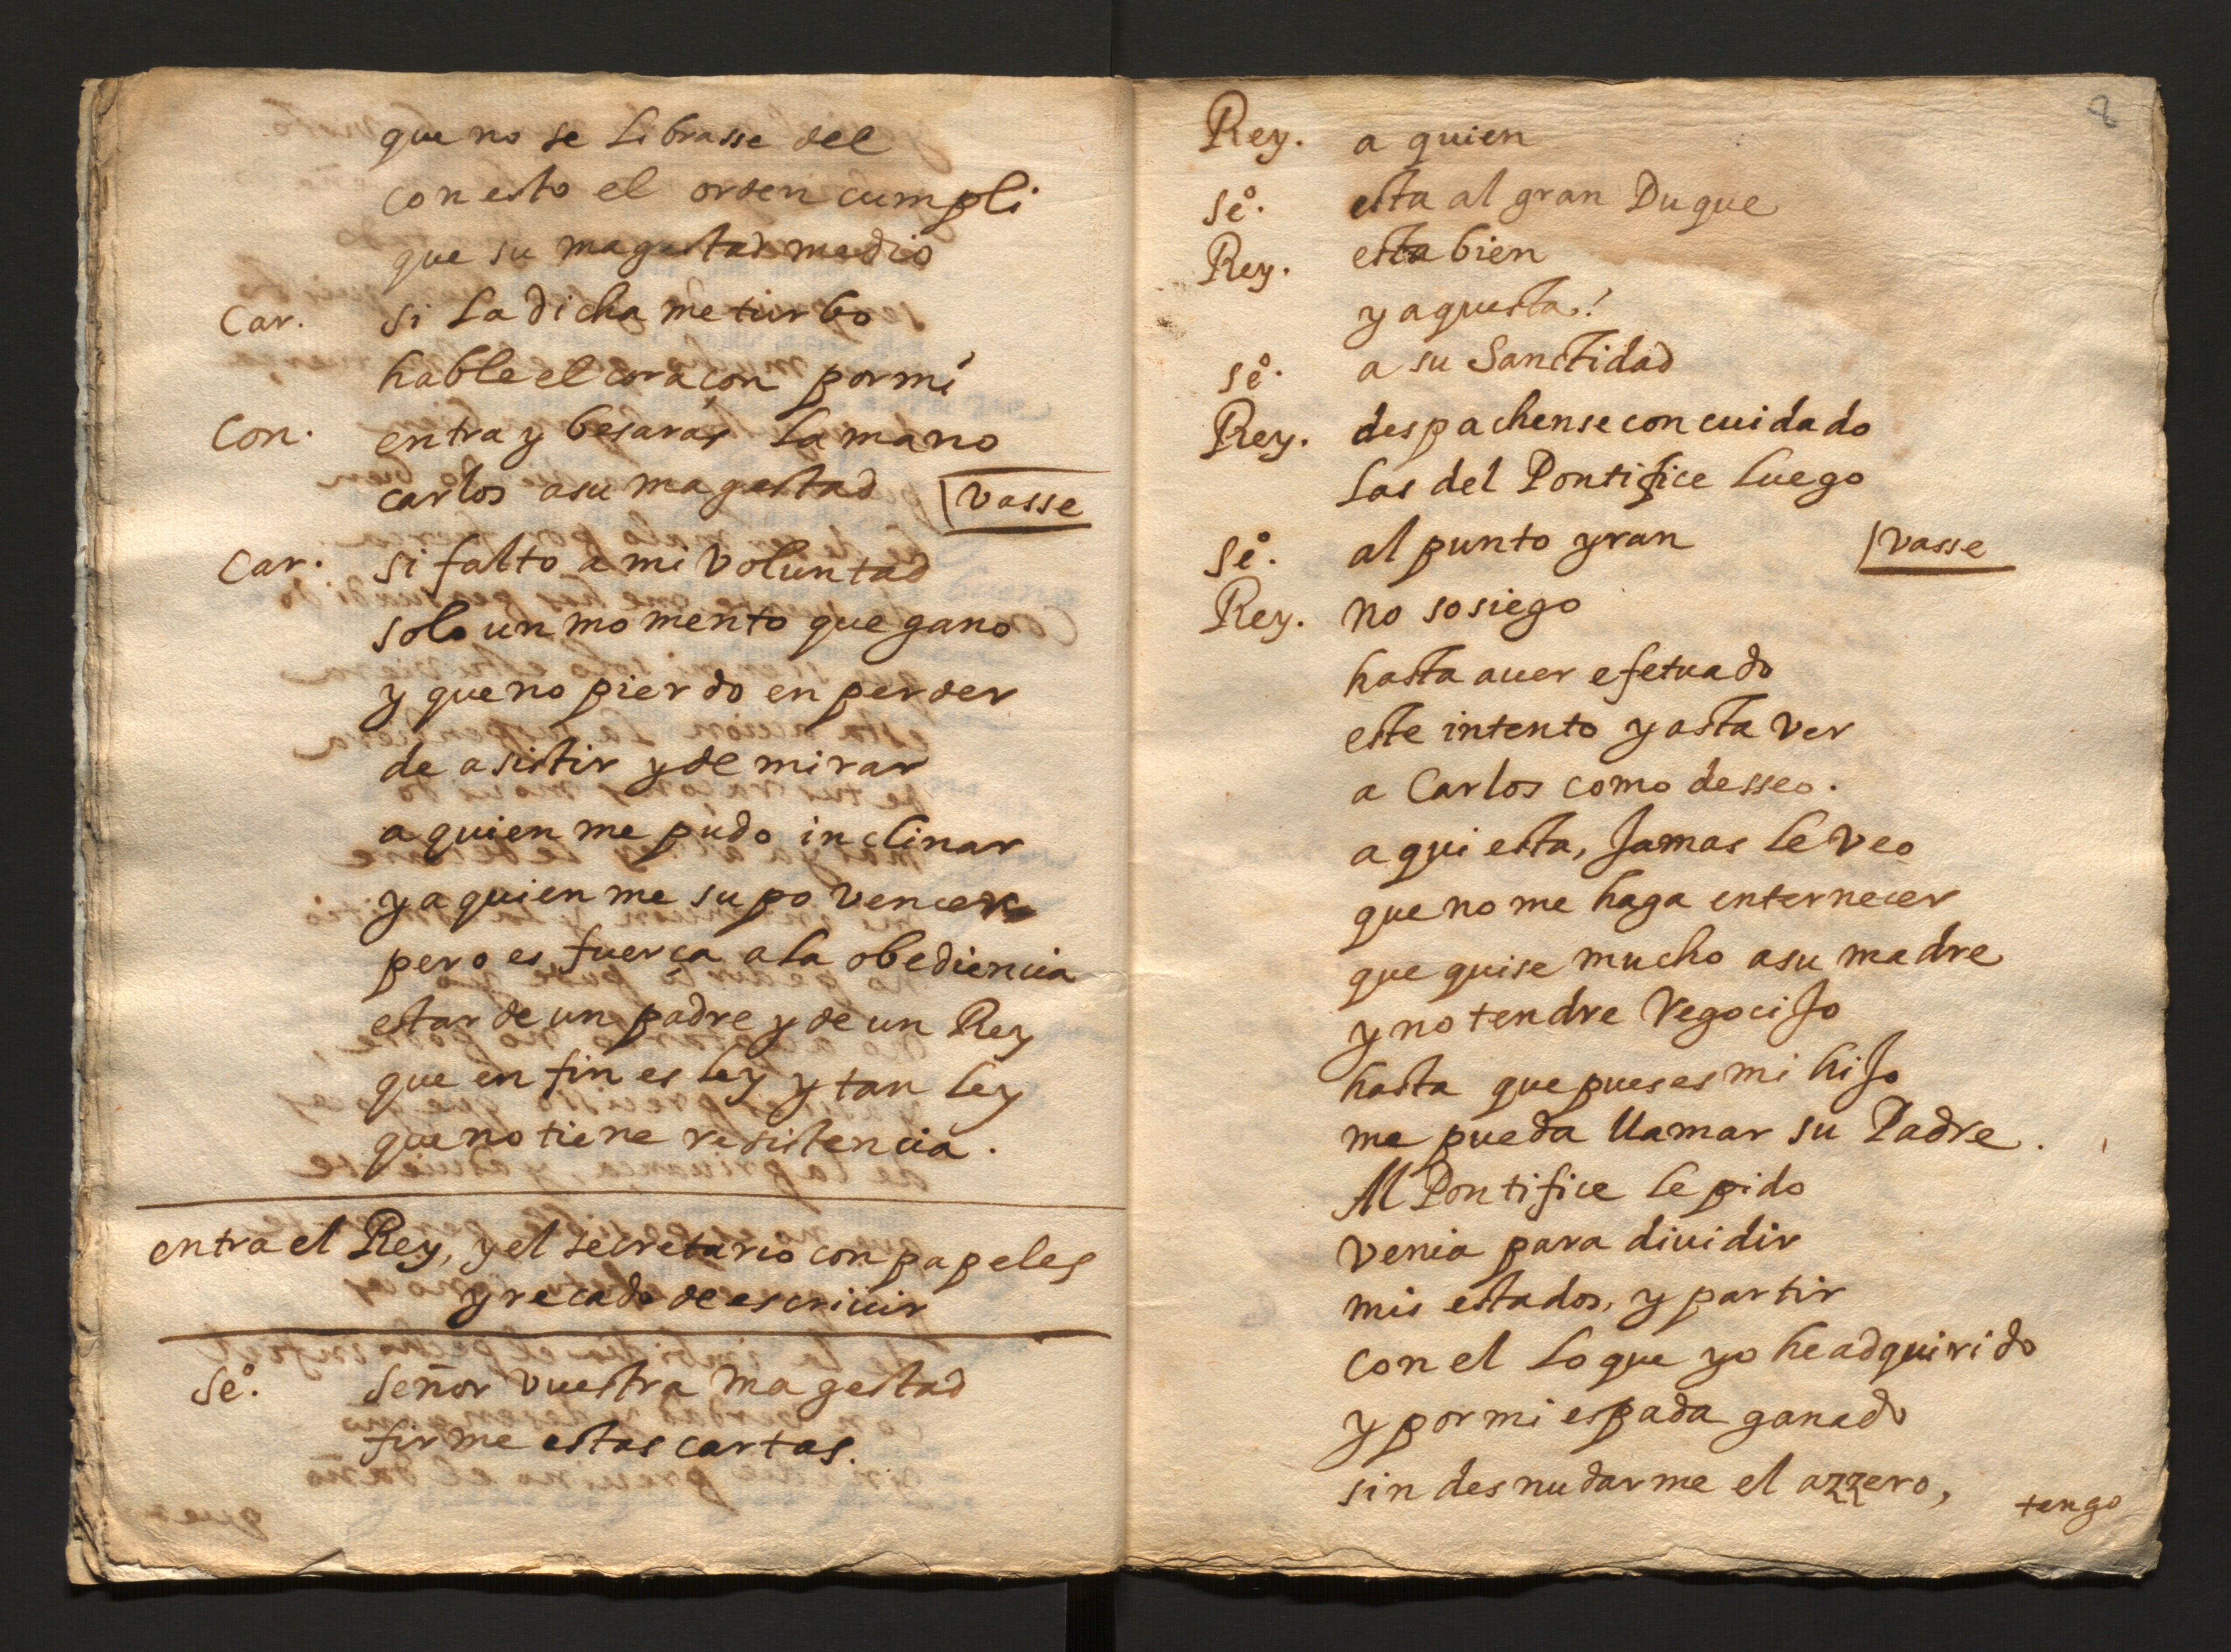 que no se Librasse del
con esto el orden cumpli
que su magestad me dio
Car. si La dicha me turbo
hable el coraçon por mi
Con. entra y besarás La mano
carlos a su magestad Vasse
Car. si falto a mi Voluntad
solo un momento que gano
y que no pierdo en perder
de asistir y de mirar
a quien me pudo inclinar
y a quien me supo vencer
pero es fuerça a la obediencia
estar de un padre y de un Rey
que en fin es ley y tan ley
que no tiene resistencia.
entra el Rey, y el secretario con papeles
y recado de escriuir
Seº. Señor vuestra magestad
firme estas cartas.
Rey. a quien
Seº. esta al gran Duque
Rey. esta bien
y aquesta!
Seº. a su Sanctidad
Rey. despachense con cuidado
Las del Pontifice Luego
Seº. al punto yran Vasse
Rey. no sosiego
hasta auer efetuado
este intento y asta ver
a Carlos como desseo.
aqui esta, Jamas le veo
que no me haga enternecer
que quise mucho a su madre
y no tendre regociJo
hasta que pues es mi hiJo
me pueda llamar su Padre.
Al Pontifice le pido
venia para diuidir
mis estados, y partir
con el Lo que yo he adquirido
y por mi espada ganado
sin desnudarme el azzero,
tengo